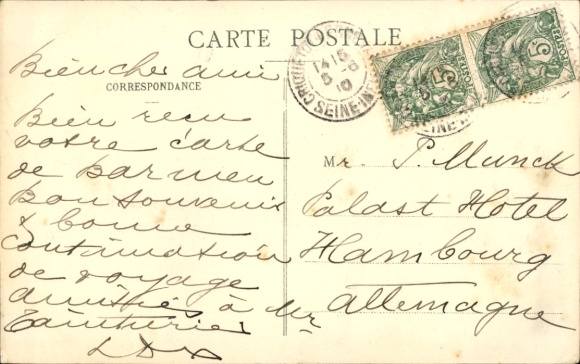 CARTE POSTALE
CORRESPONDANCE
Bien cher ami
Bien reçu
votre carte
de Barmen
Bon souvenir
& bonne
Continuation
de voyage
amitiés à Mr
14 15
5 - 6
10
SEINE-IN
Mr. P. Munck
Palast Hotel
Hambourg
Allemagne